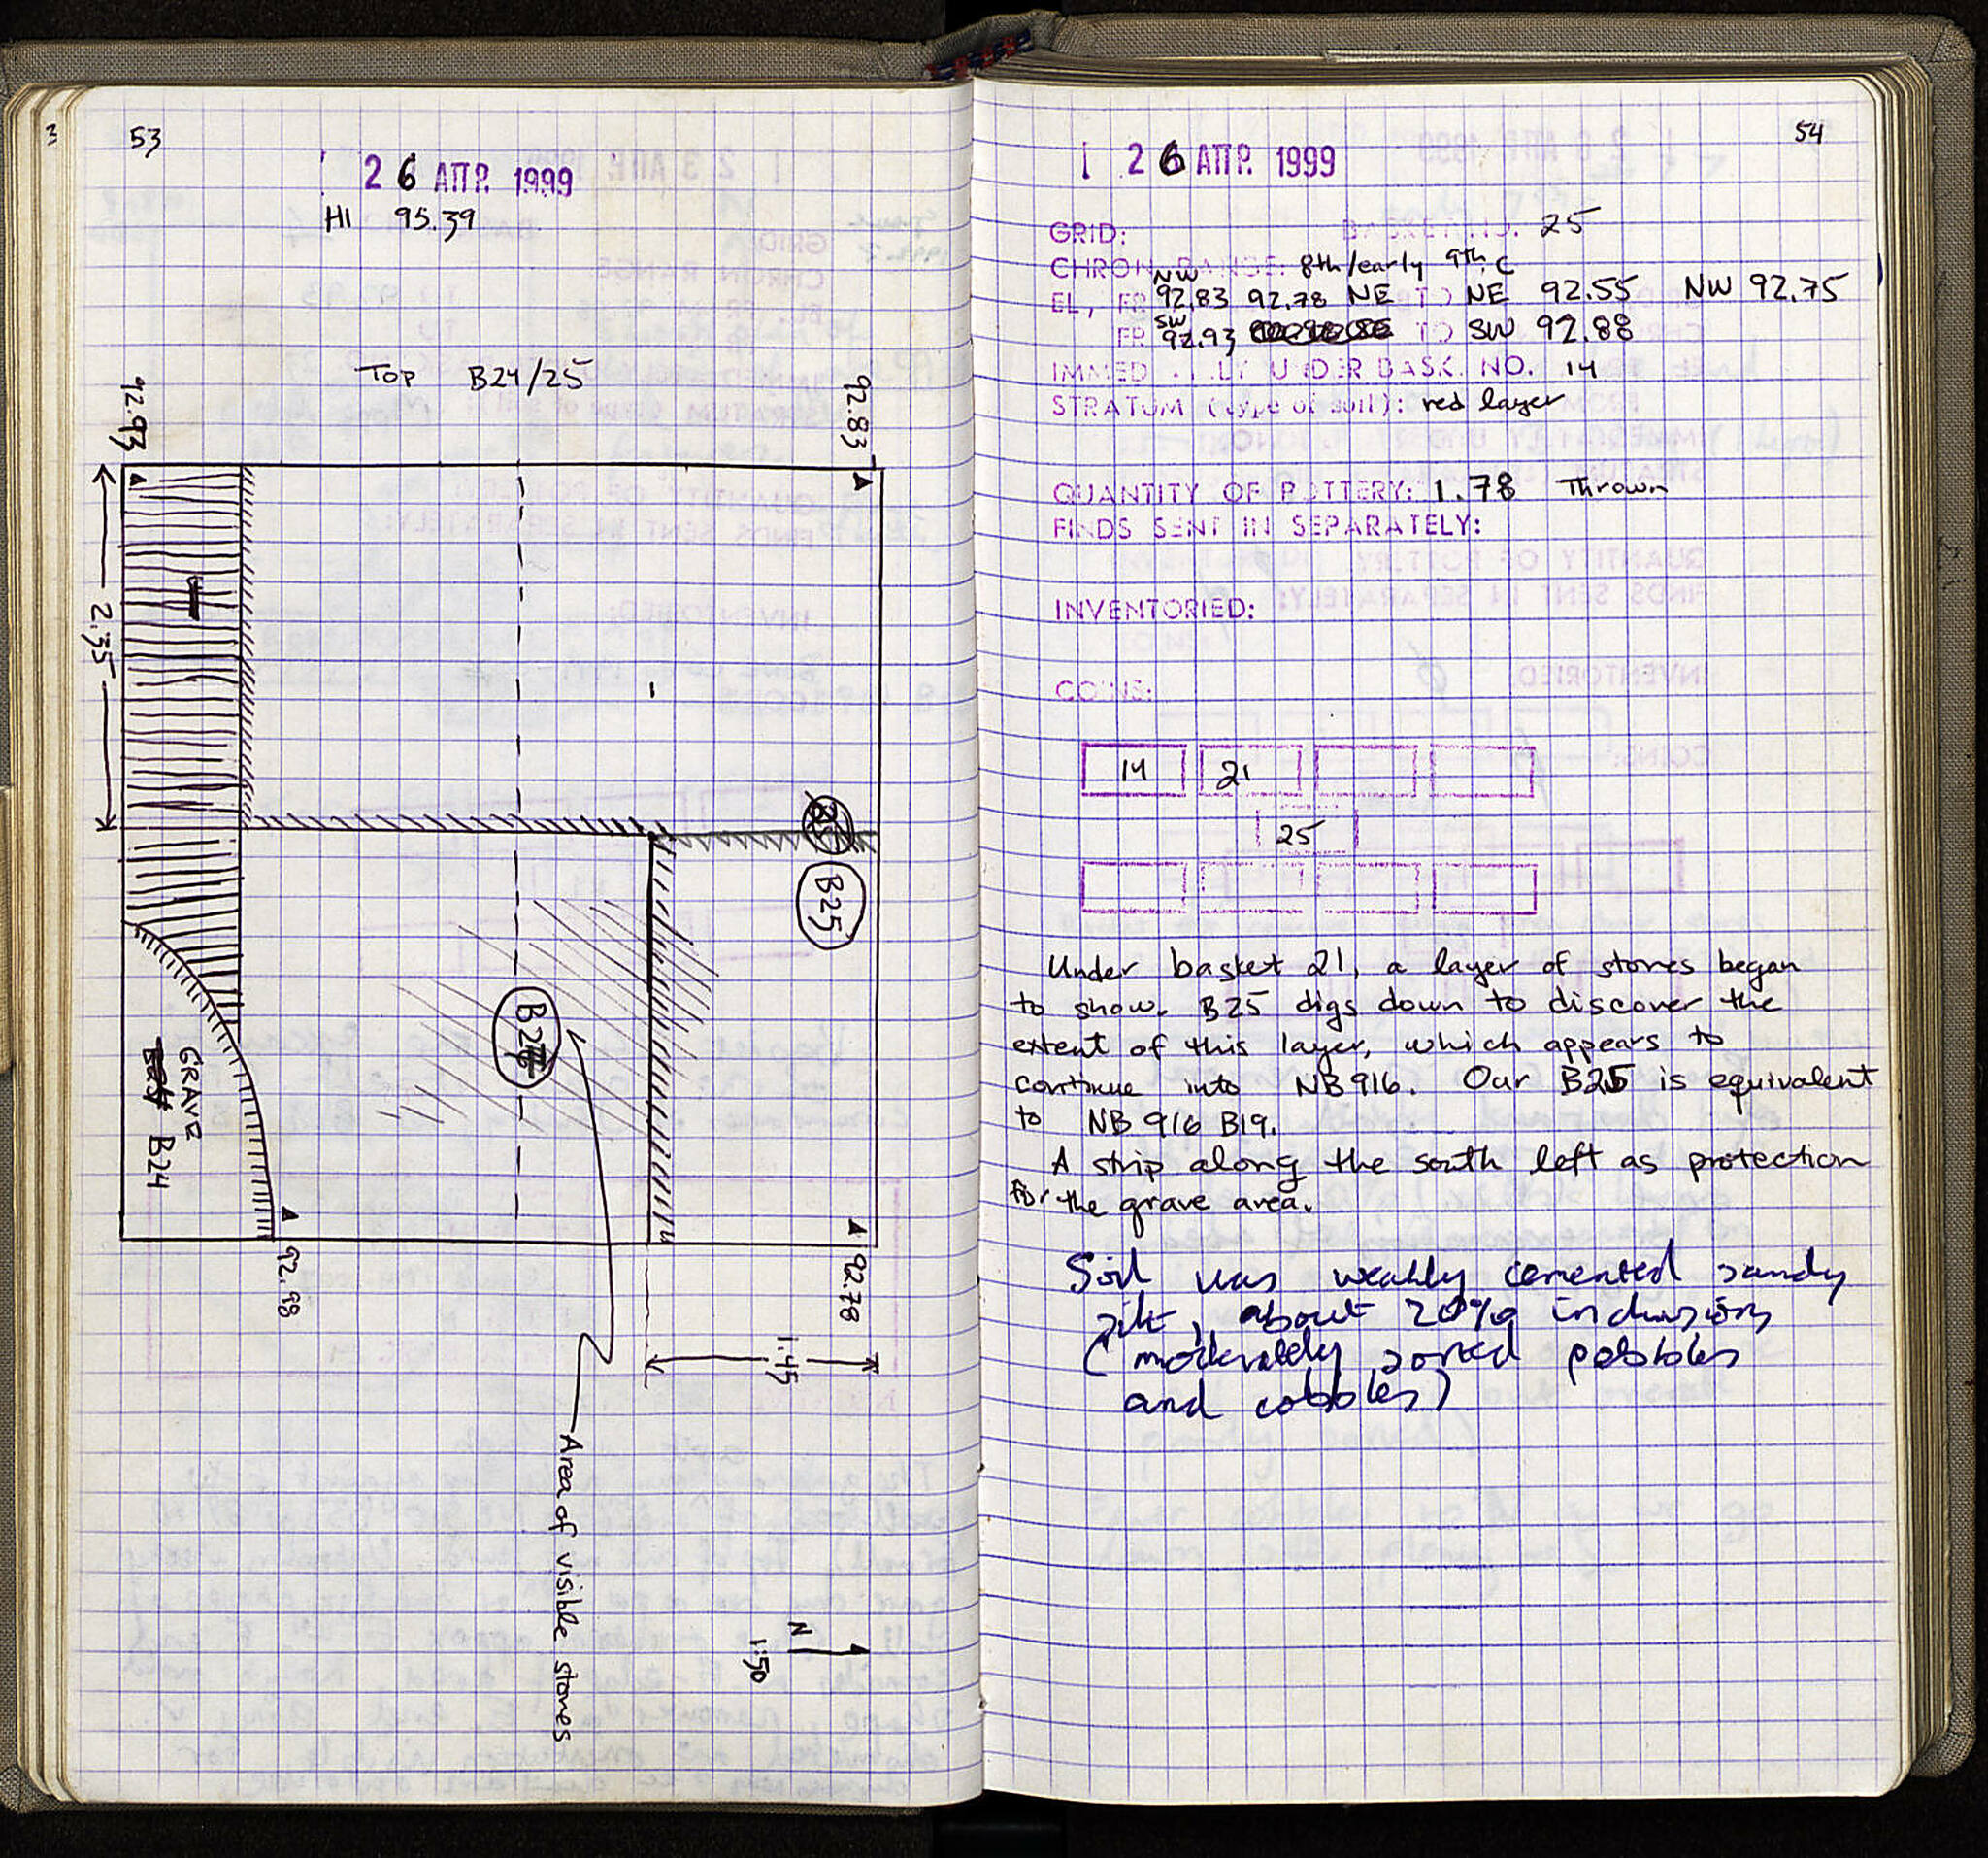 3
53
26 ΑΠΡ. 1999
HI 95.39
Top B24/25
92.93
92.83
2.35
B25
GRAVE
B24
92.98
92.78
1.45
Area of visible stones
N
1:50
54
26 ΑΠΡ. 1999
GRID: BASKET NO. 25
CHRON. RANGE: 8th/early 9th c
NW
EL, FR 92.83 92.78 NE TO NE 92.55 NW 92.75
SW
FR 92.93 TO SW 92.88
IMMEDIATELY UNDER BASK. NO. 14
STRATUM (type of soil): red layer
QUANTITY OF POTTERY: 1.78 Thrown
FINDS SENT IN SEPARATELY:
INVENTORIED:
COINS:
14 21
25
Under basket 21, a layer of stones began
to show. B25 digs down to discover the
extent of this layer, which appears to
continue into NB 916. Our B25 is equivalent
to NB 916 B19.
A strip along the south left as protection
for the grave area.
Soil was weakly cemented sandy
silt, about 20% inclusions
(moderately sorted pebbles
and cobbles)